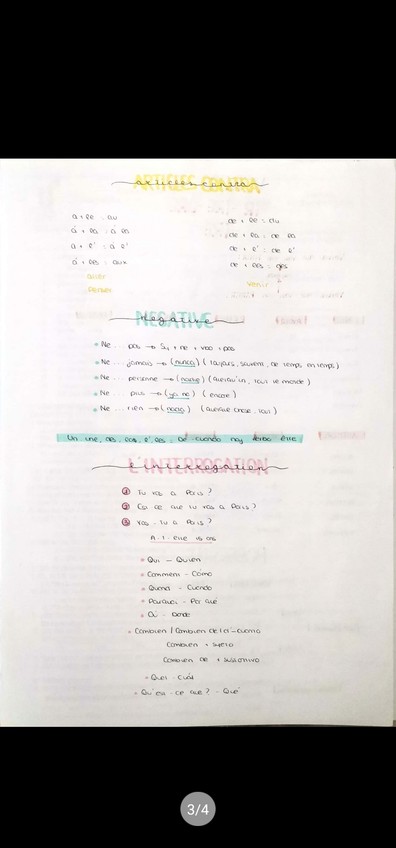 ARTICLES CONTRA
articles contra
a + le = au
de + le = du
á + la = á la
de + la = de la
a + l' = á l'
de + l' = de l'
á + les = aux
de + les = des
penser
venir
NEGATIVE
negative
Ne ... pas → Sj + ne + vbo + pas
Ne ... jamais → (nunca) (toujours, souvent, de temps en temps)
Ne ... personne → (nadie) (quelqu'un, tout le monde)
Ne ... plus → (ya no) (encore)
Ne ... rien → (nada) (quelque chose, tout)
Un, une, des, l', les De cuando hay verbo être
L'INTERROGATION
l'interrogation
1 Tu vas a Paris?
2 Est ce que tu vas a Paris?
3 Vas-tu a Paris?
A-t-elle 15 ans
Qui - Quien
Comment - Cómo
Quand - Cuando
Pourquoi - Por qué
Où - Donde
Combien / Combien de
Combien + sujeto
Combien de + sustantivo
Quel - Cuál
Qu'est-ce que? - Qué
3/4